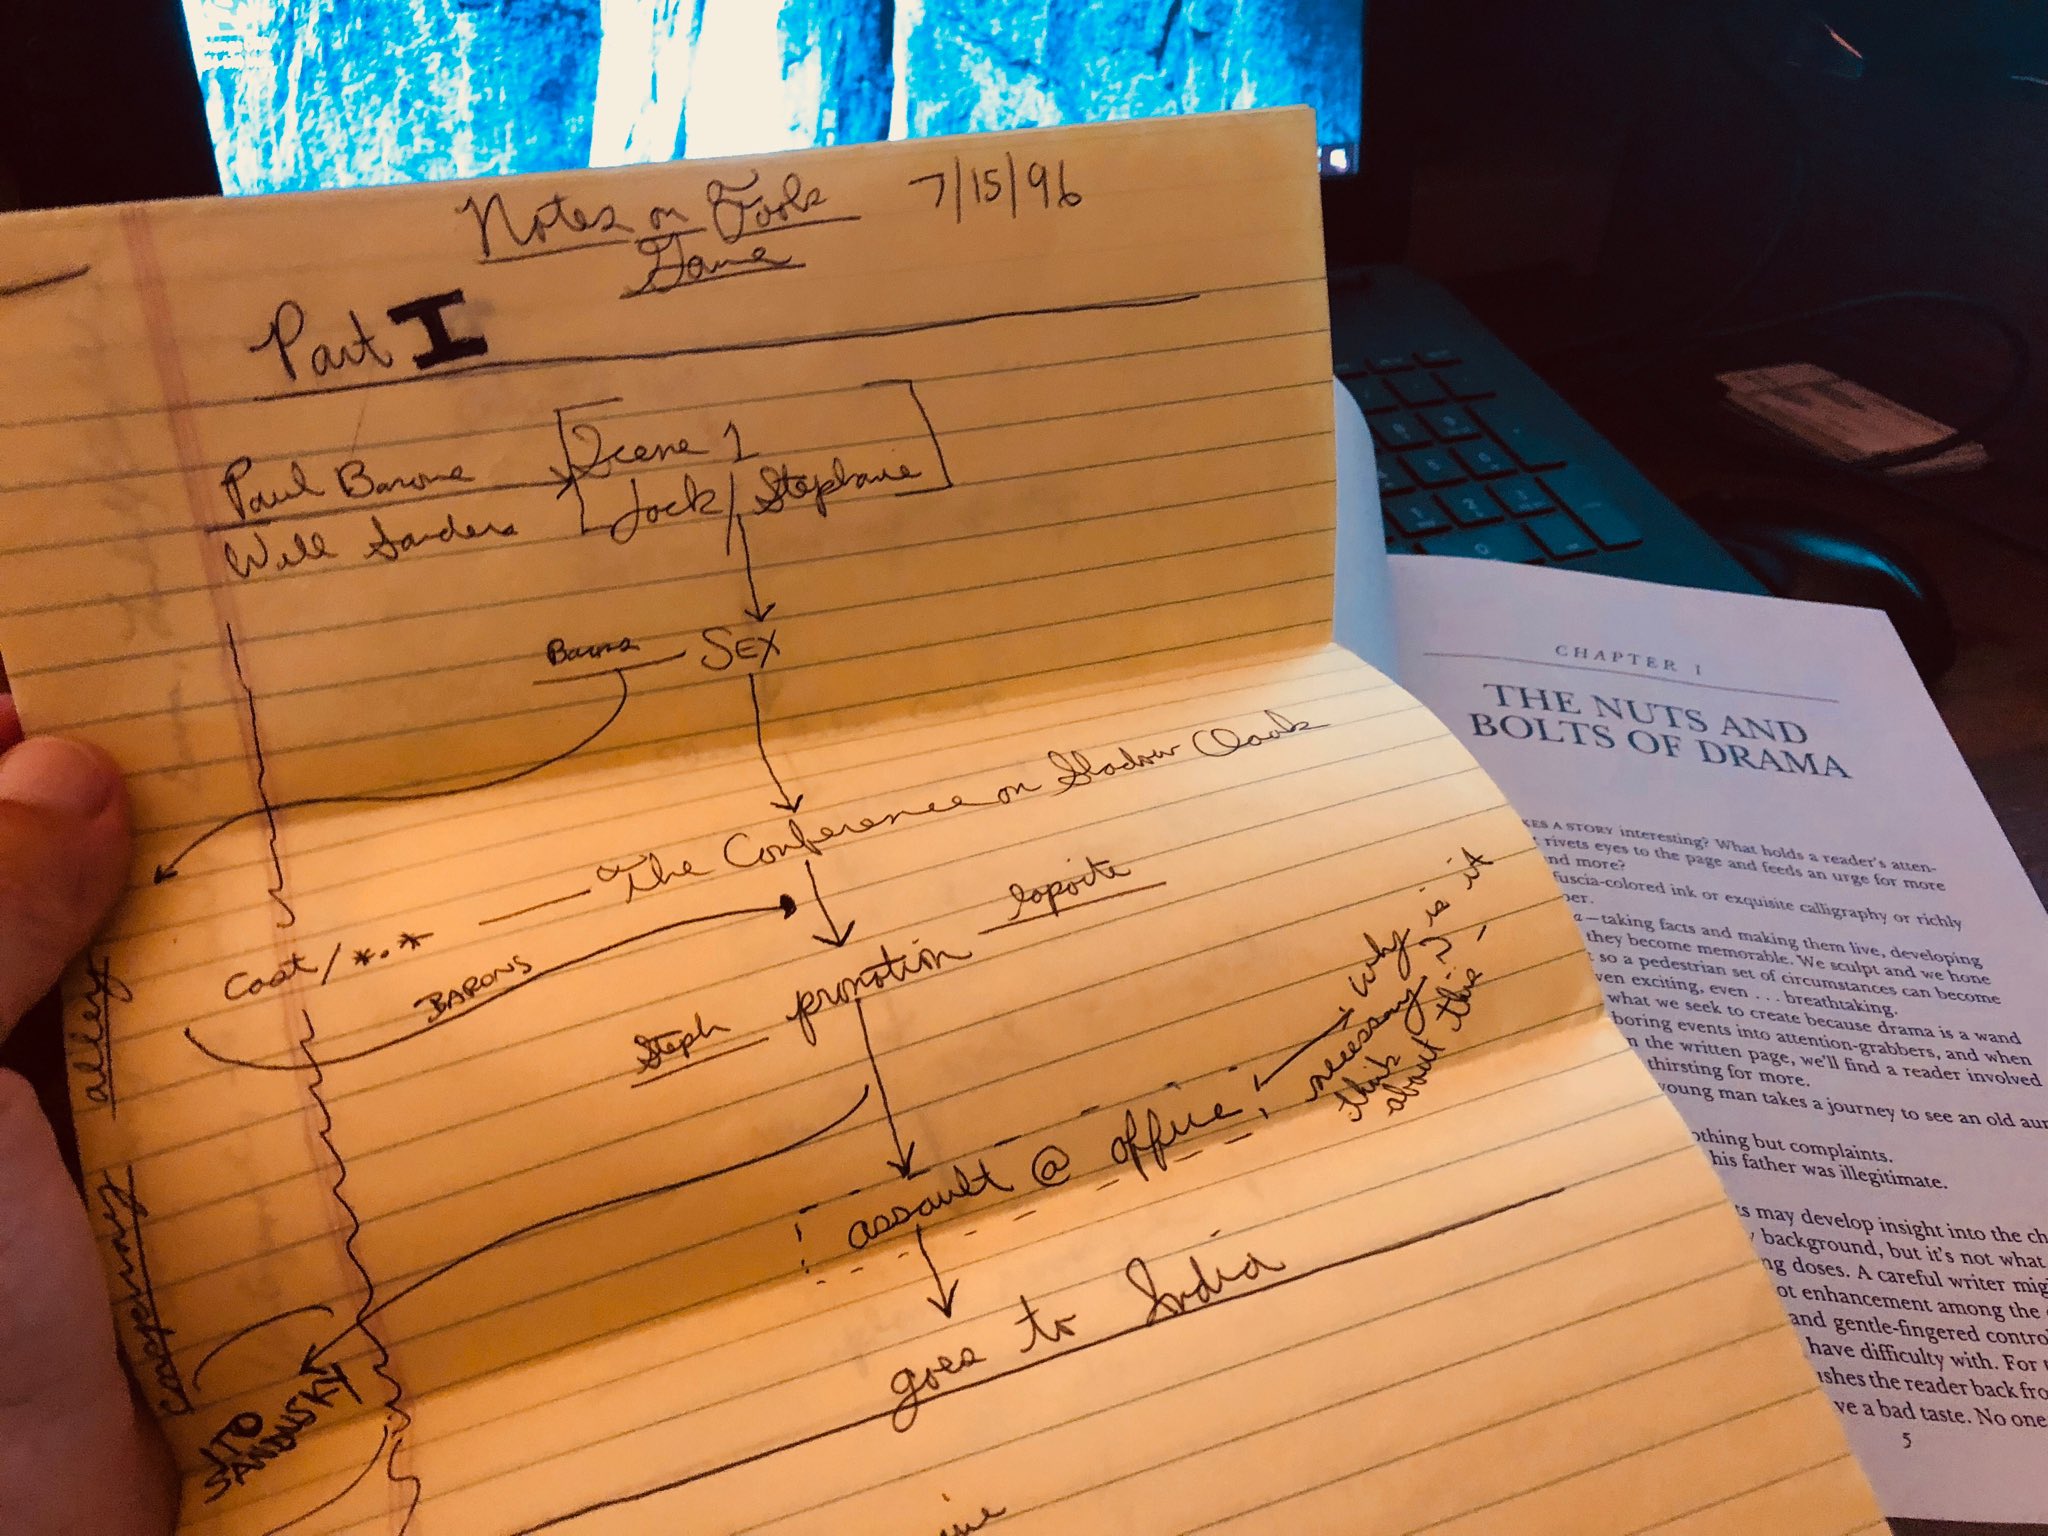 Notes on Fools 7/15/96
Game
Part I
Paul Barone
Will Sanders
Scene 1
Jack/Stephanie
SEX
The Conference on Shadow Cloak
Cost/*.*
BARONS
laporte
Steph promotion
assault @ office
Why is it
necessary?
think
about this
goes to India
alley
TO
SANDUSKY
CHAPTER 1
THE NUTS AND
BOLTS OF DRAMA
A STORY interesting? What holds a reader's atten-
rivets eyes to the page and feeds an urge for more
and more?
fuscia-colored ink or exquisite calligraphy or richly
—taking facts and making them live, developing
they become memorable. We sculpt and we hone
so a pedestrian set of circumstances can become
exciting, even . . . breathtaking.
what we seek to create because drama is a wand
boring events into attention-grabbers, and when
the written page, we'll find a reader involved
thirsting for more.
young man takes a journey to see an old
nothing but complaints.
his father was illegitimate.
may develop insight into the
background, but it's not what
doses. A careful writer
enhancement among the
and gentle-fingered
have difficulty with. For
the reader back
a bad taste. No one
5